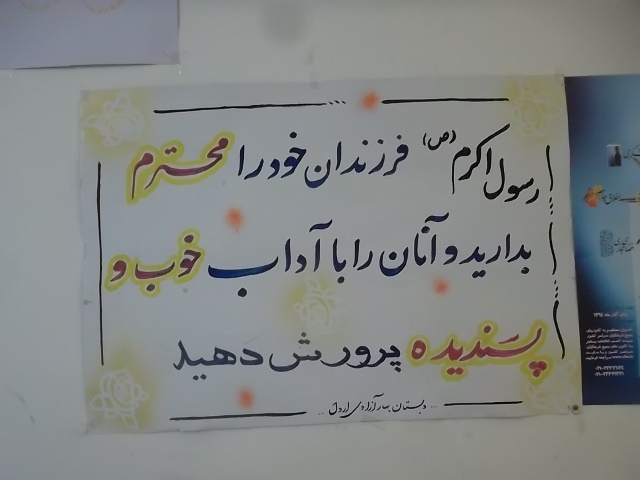 رسول اکرم (ص) فرزندان خود را محترم
بدارید و آنان را با آداب خوب و
پسندیده پرورش دهید
... دبستان بهار آزادی اردل ...